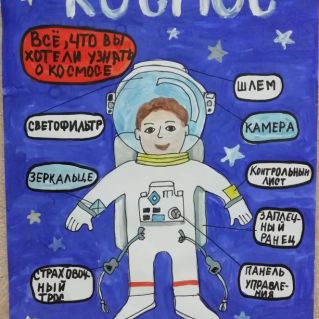 КОСМОС
ВСЁ, ЧТО ВЫ
ХОТЕЛИ УЗНАТЬ
О КОСМОСЕ
ШЛЕМ
СВЕТОФИЛЬТР
КАМЕРА
ЗЕРКАЛЬЦЕ
КОНТРОЛЬНЫЙ
ЛИСТ
ЗАПЛЕЧ-
НЫЙ
РАНЕЦ
СТРАХОВОЧ-
НЫЙ
ТРОС
ПАНЕЛЬ
УПРАВЛЕ-
НИЯ